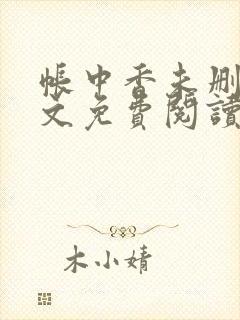 帳中香未刪
文免費閱讀
木小婧